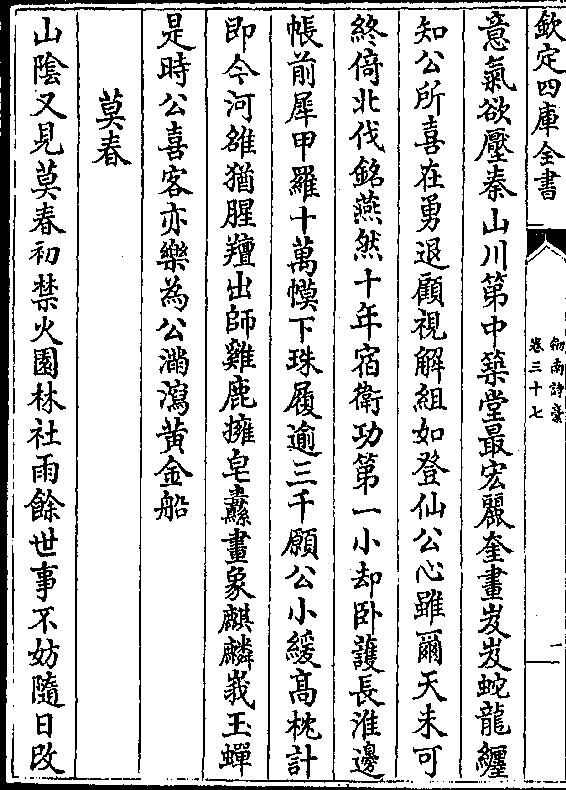 欽定四庫全書
劔南詩稾
卷三十七
一
意氣欲壓秦山川第中築堂最宏麗奎畫岌岌蛇龍纒
知公所喜在勇退顧視解組如登仙公心雖爾天未可
終倚北伐銘燕然十年宿衛功第一小却卧䕶長淮邊
帳前犀甲羅十萬幙下珠履逾三千願公小緩髙枕計
即今河雒猶腥羶出師雞鹿擁皂纛畫象麒麟峩玉蟬
是時公喜客亦樂為公滿瀉黄金船
莫春
山隂又見莫春初禁火園林社雨餘世事不妨隨日改